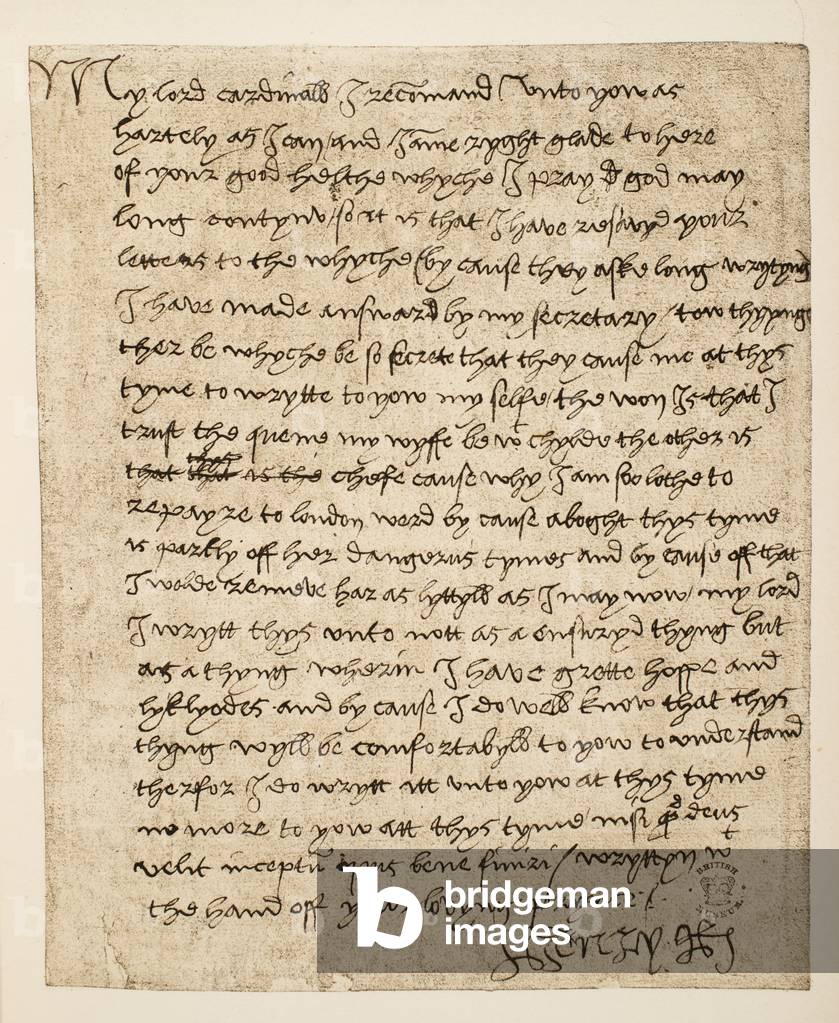 My lord cardinall I recomand unto yow as
hartely as I can / and I ame ryght glade to here
of your good helthe whyche I pray god may
long contynw / so it is that I have resavyd your
letters to the whyche (by cause they aske long wrytyng
I have made answard by my secretary / tow thyngs
ther be whyche be so secrete that they cause me at thys
tyme to wrytte to yow my selfe / the won is that I
trust the quene my wyffe be wt chylde the other is
that is the chefe cause why I am soo lothe to
repayre to london werd by cause aboght thys tyme
is partly off her dangerus tymes and by cause off that
I wolde remeve har as lyttyll as I may now / my lord
I wrytt thys unto nott as a ensuryd thyng but
as a thyng wherin I have grette hoppe and
lyklyodes and by cause I do well know that thys
thyng wyll be comfortabyll to yow to understand
therfor I do wrytt itt unto yow at thys tyme
no more to yow att thys tyme / nisi qd deus
velit inceptu opus bene finiri / wryttyn wt
the hand off your lovyng prynce
Henry R
b
bridgeman
images
BRITISH MUSEUM